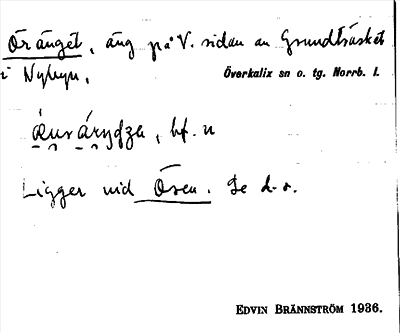 Öränget, äng på V. sidan av Grundträsket
i Nybyn,
Överkalix sn o. tg. Norrb. l.
, bf. n
Ligger vid Ören. Se d.o.
EDVIN BRÄNNSTRÖM 1936.